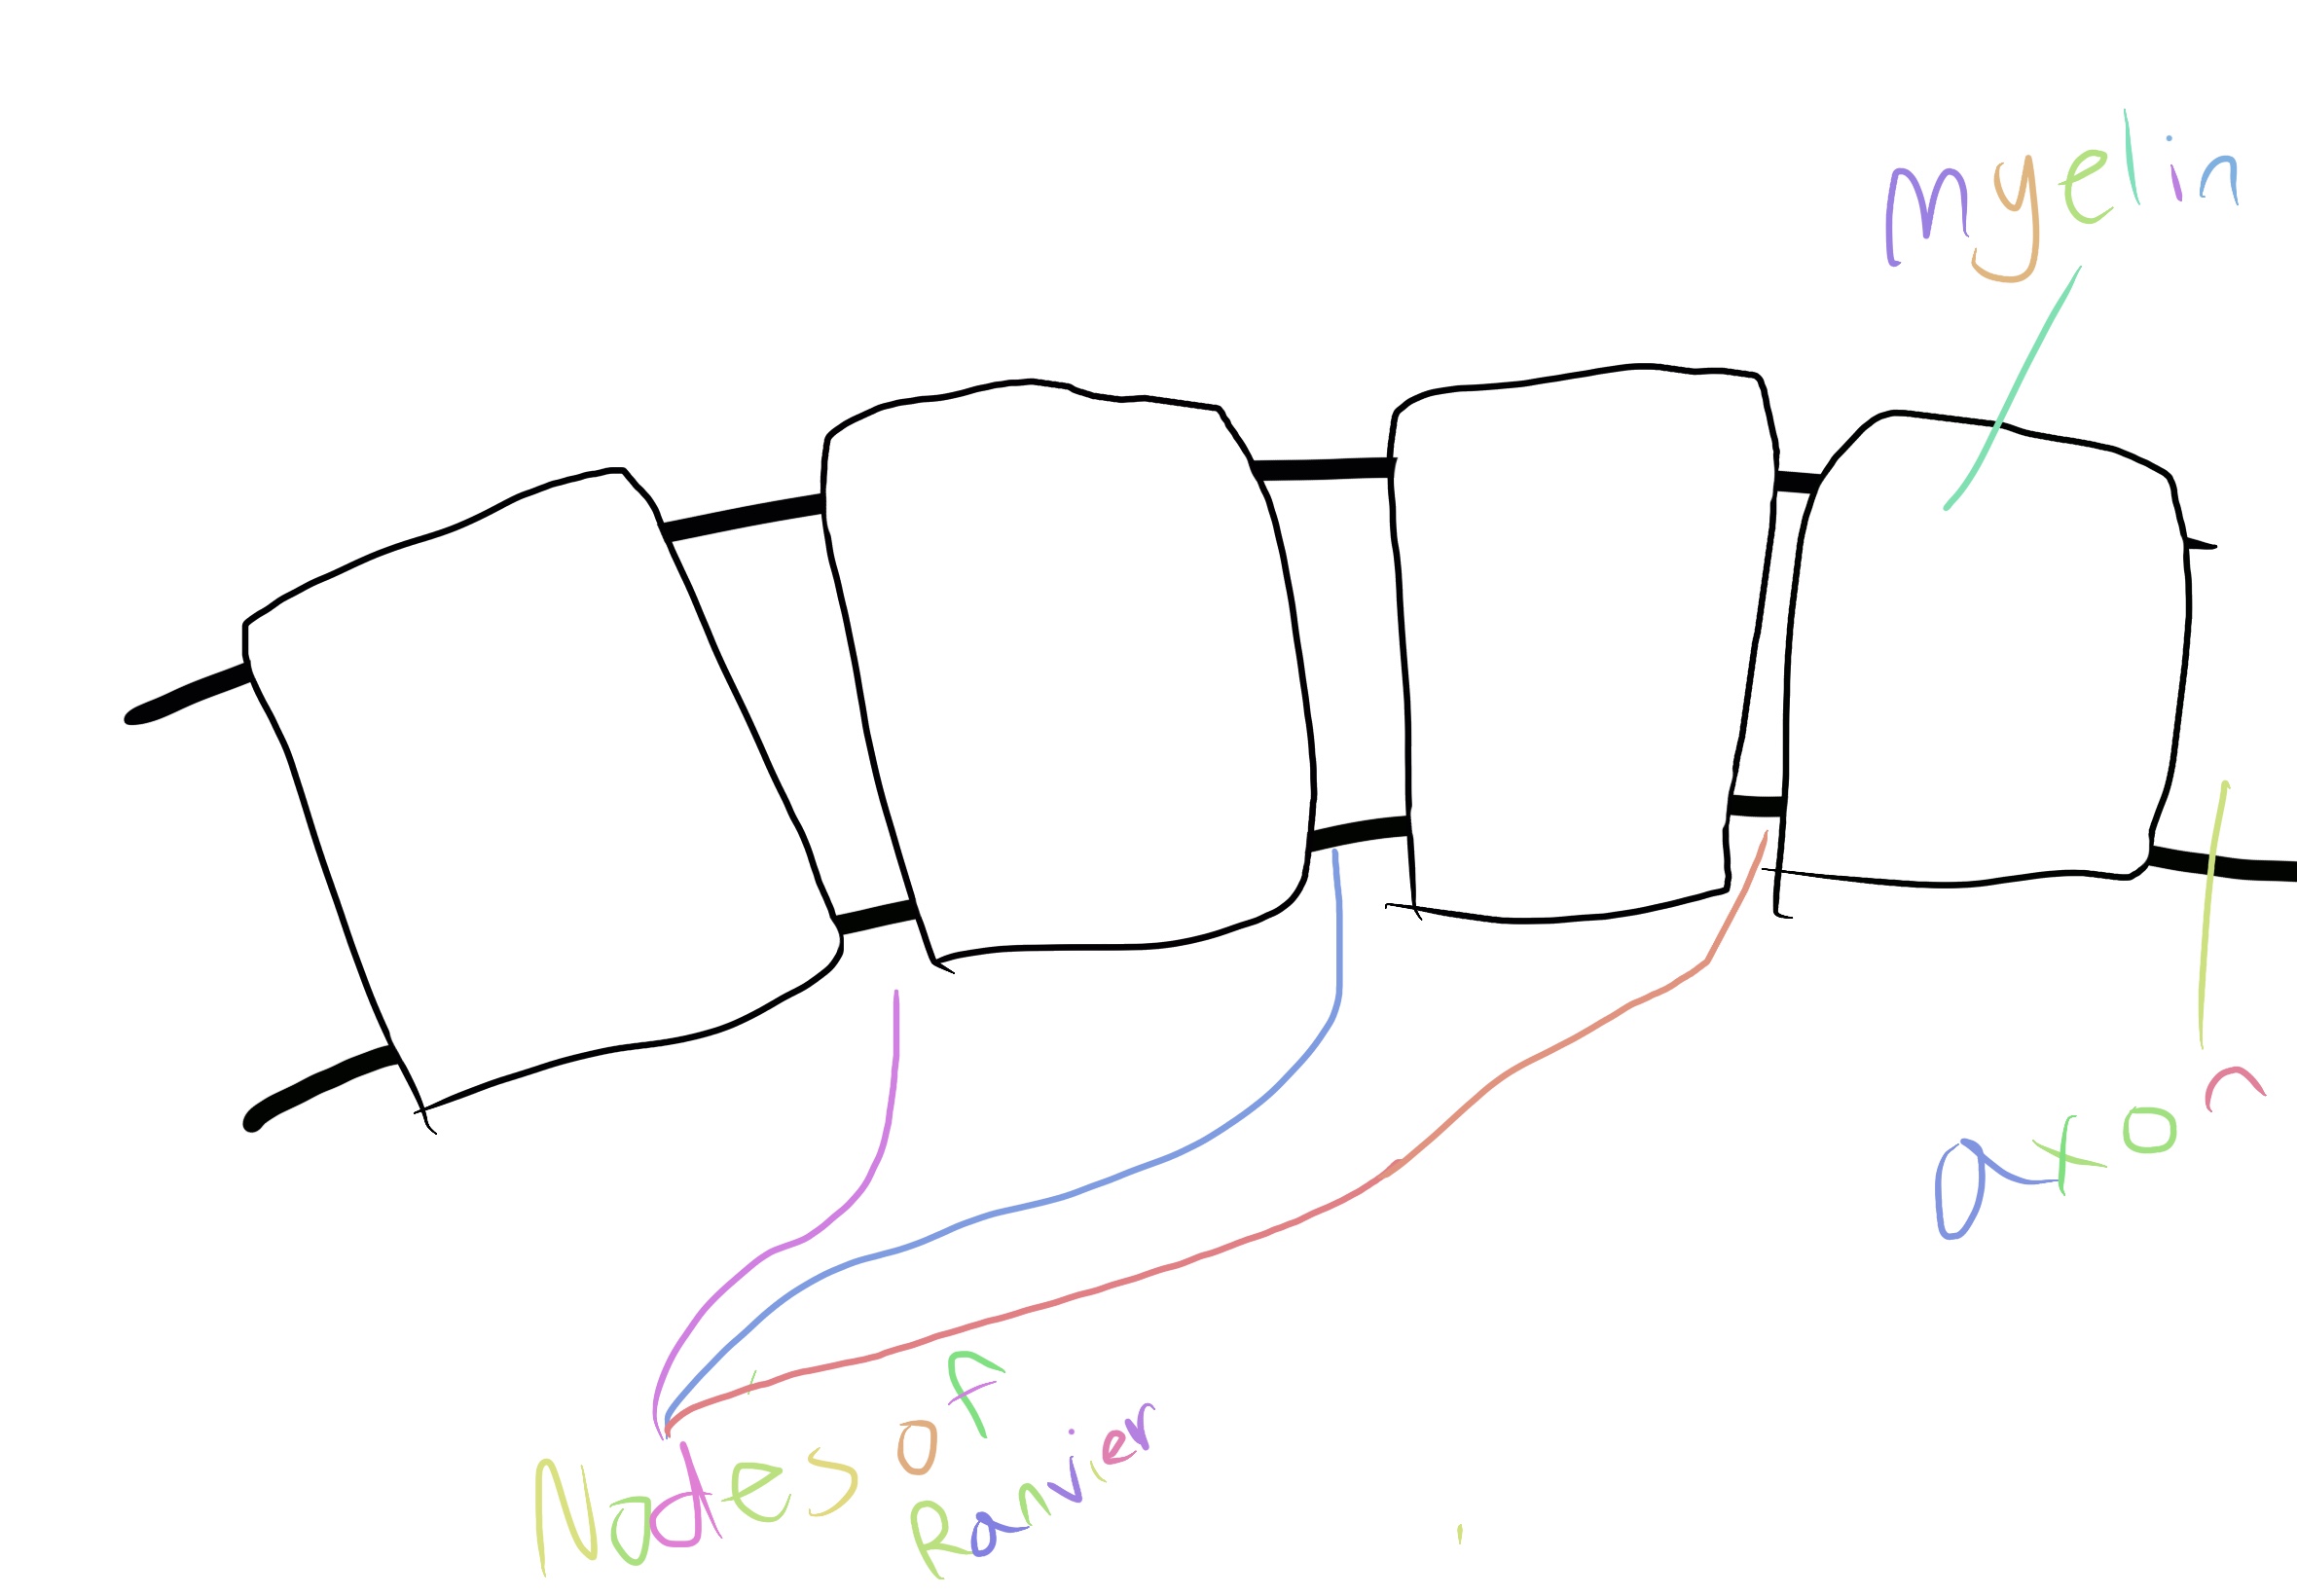 myelin
axon
Nodes of
Ranvier